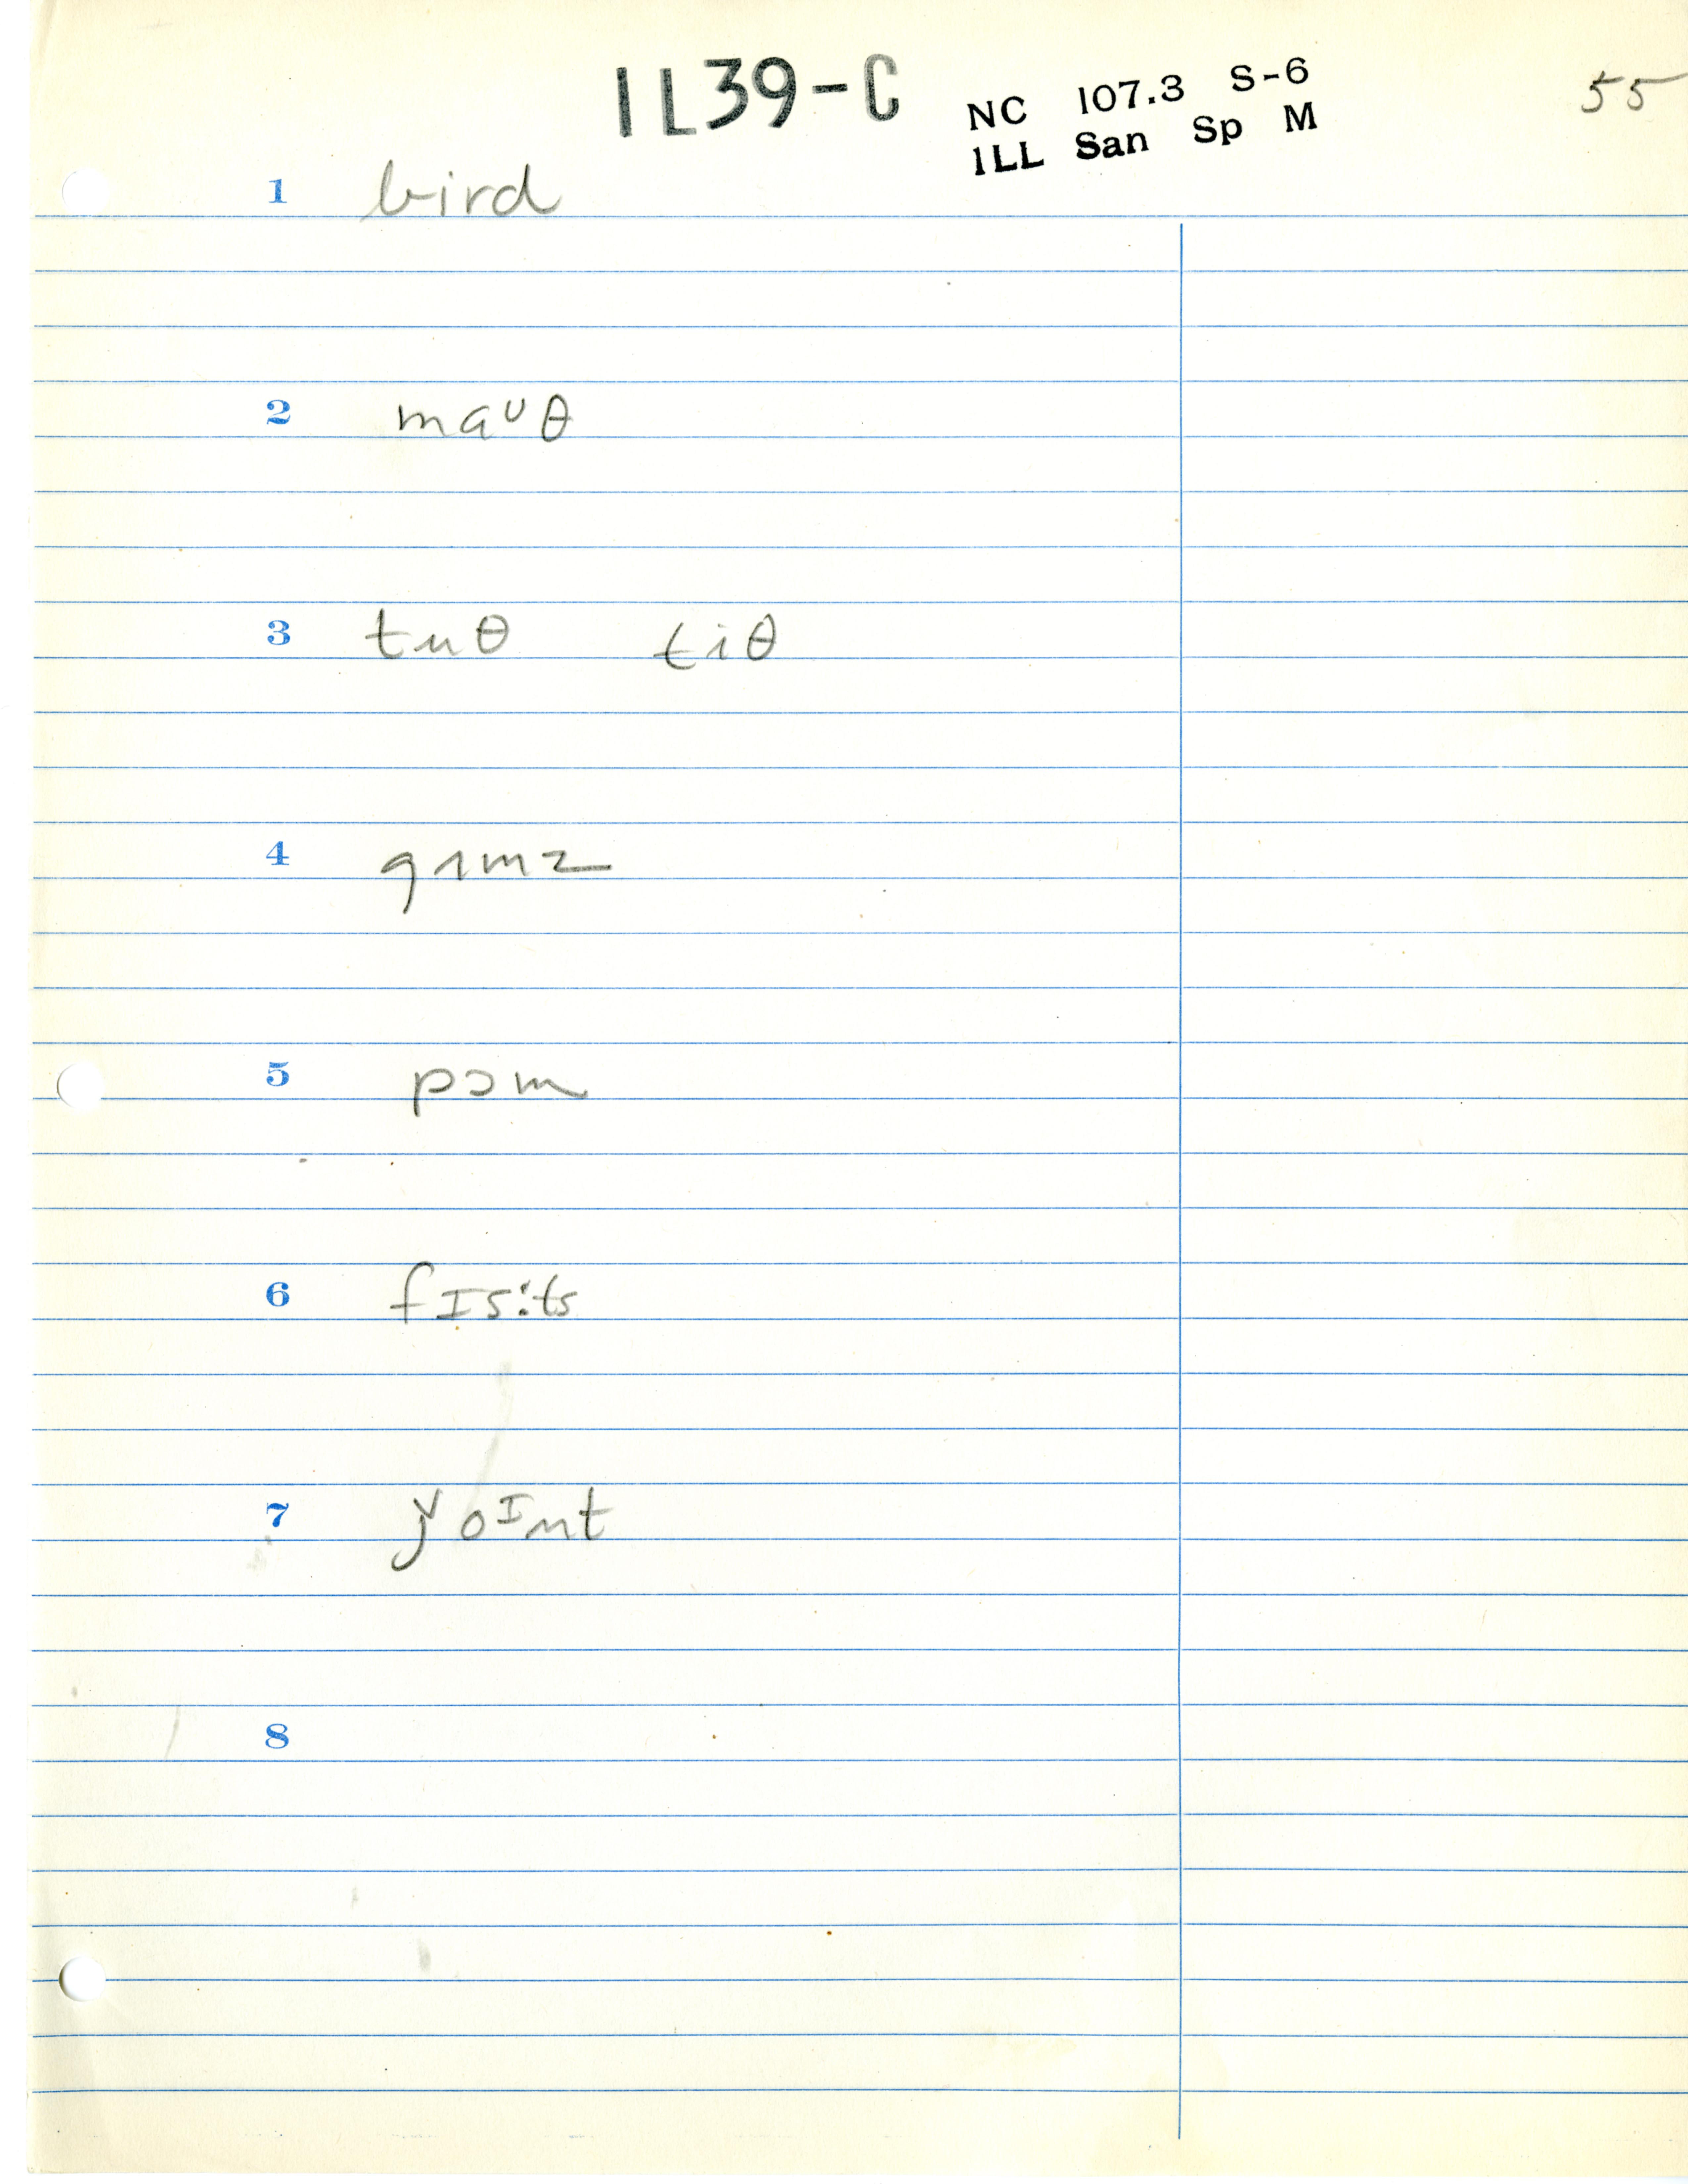 1L39-C
NC 107.3 S-6
1LL San Sp M
55
1 bird
2 maᶷθ
3 tuθ tiθ
4 gʌmz
5 pɔm
6 fɪs:ts
7 ǰoᴵnt
8